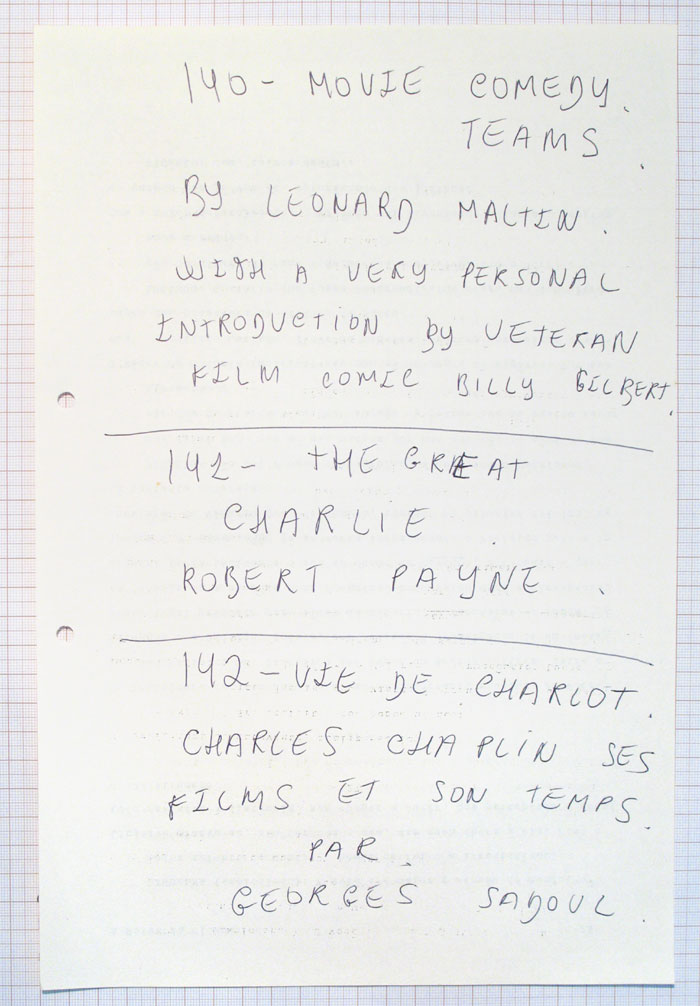 140 - MOVIE COMEDY.
TEAMS.
BY LEONARD MALTIN.
WITH A VERY PERSONAL
INTRODUCTION By VETERAN
FILM COMIC BILLY GILBERT.
142 - THE GREAT
CHARLIE.
ROBERT PAYNE.
142 - VIE DE CHARLOT.
CHARLES CHAPLIN SES
FILMS ET SON TEMPS.
PAR
GEORGES SADOUL.